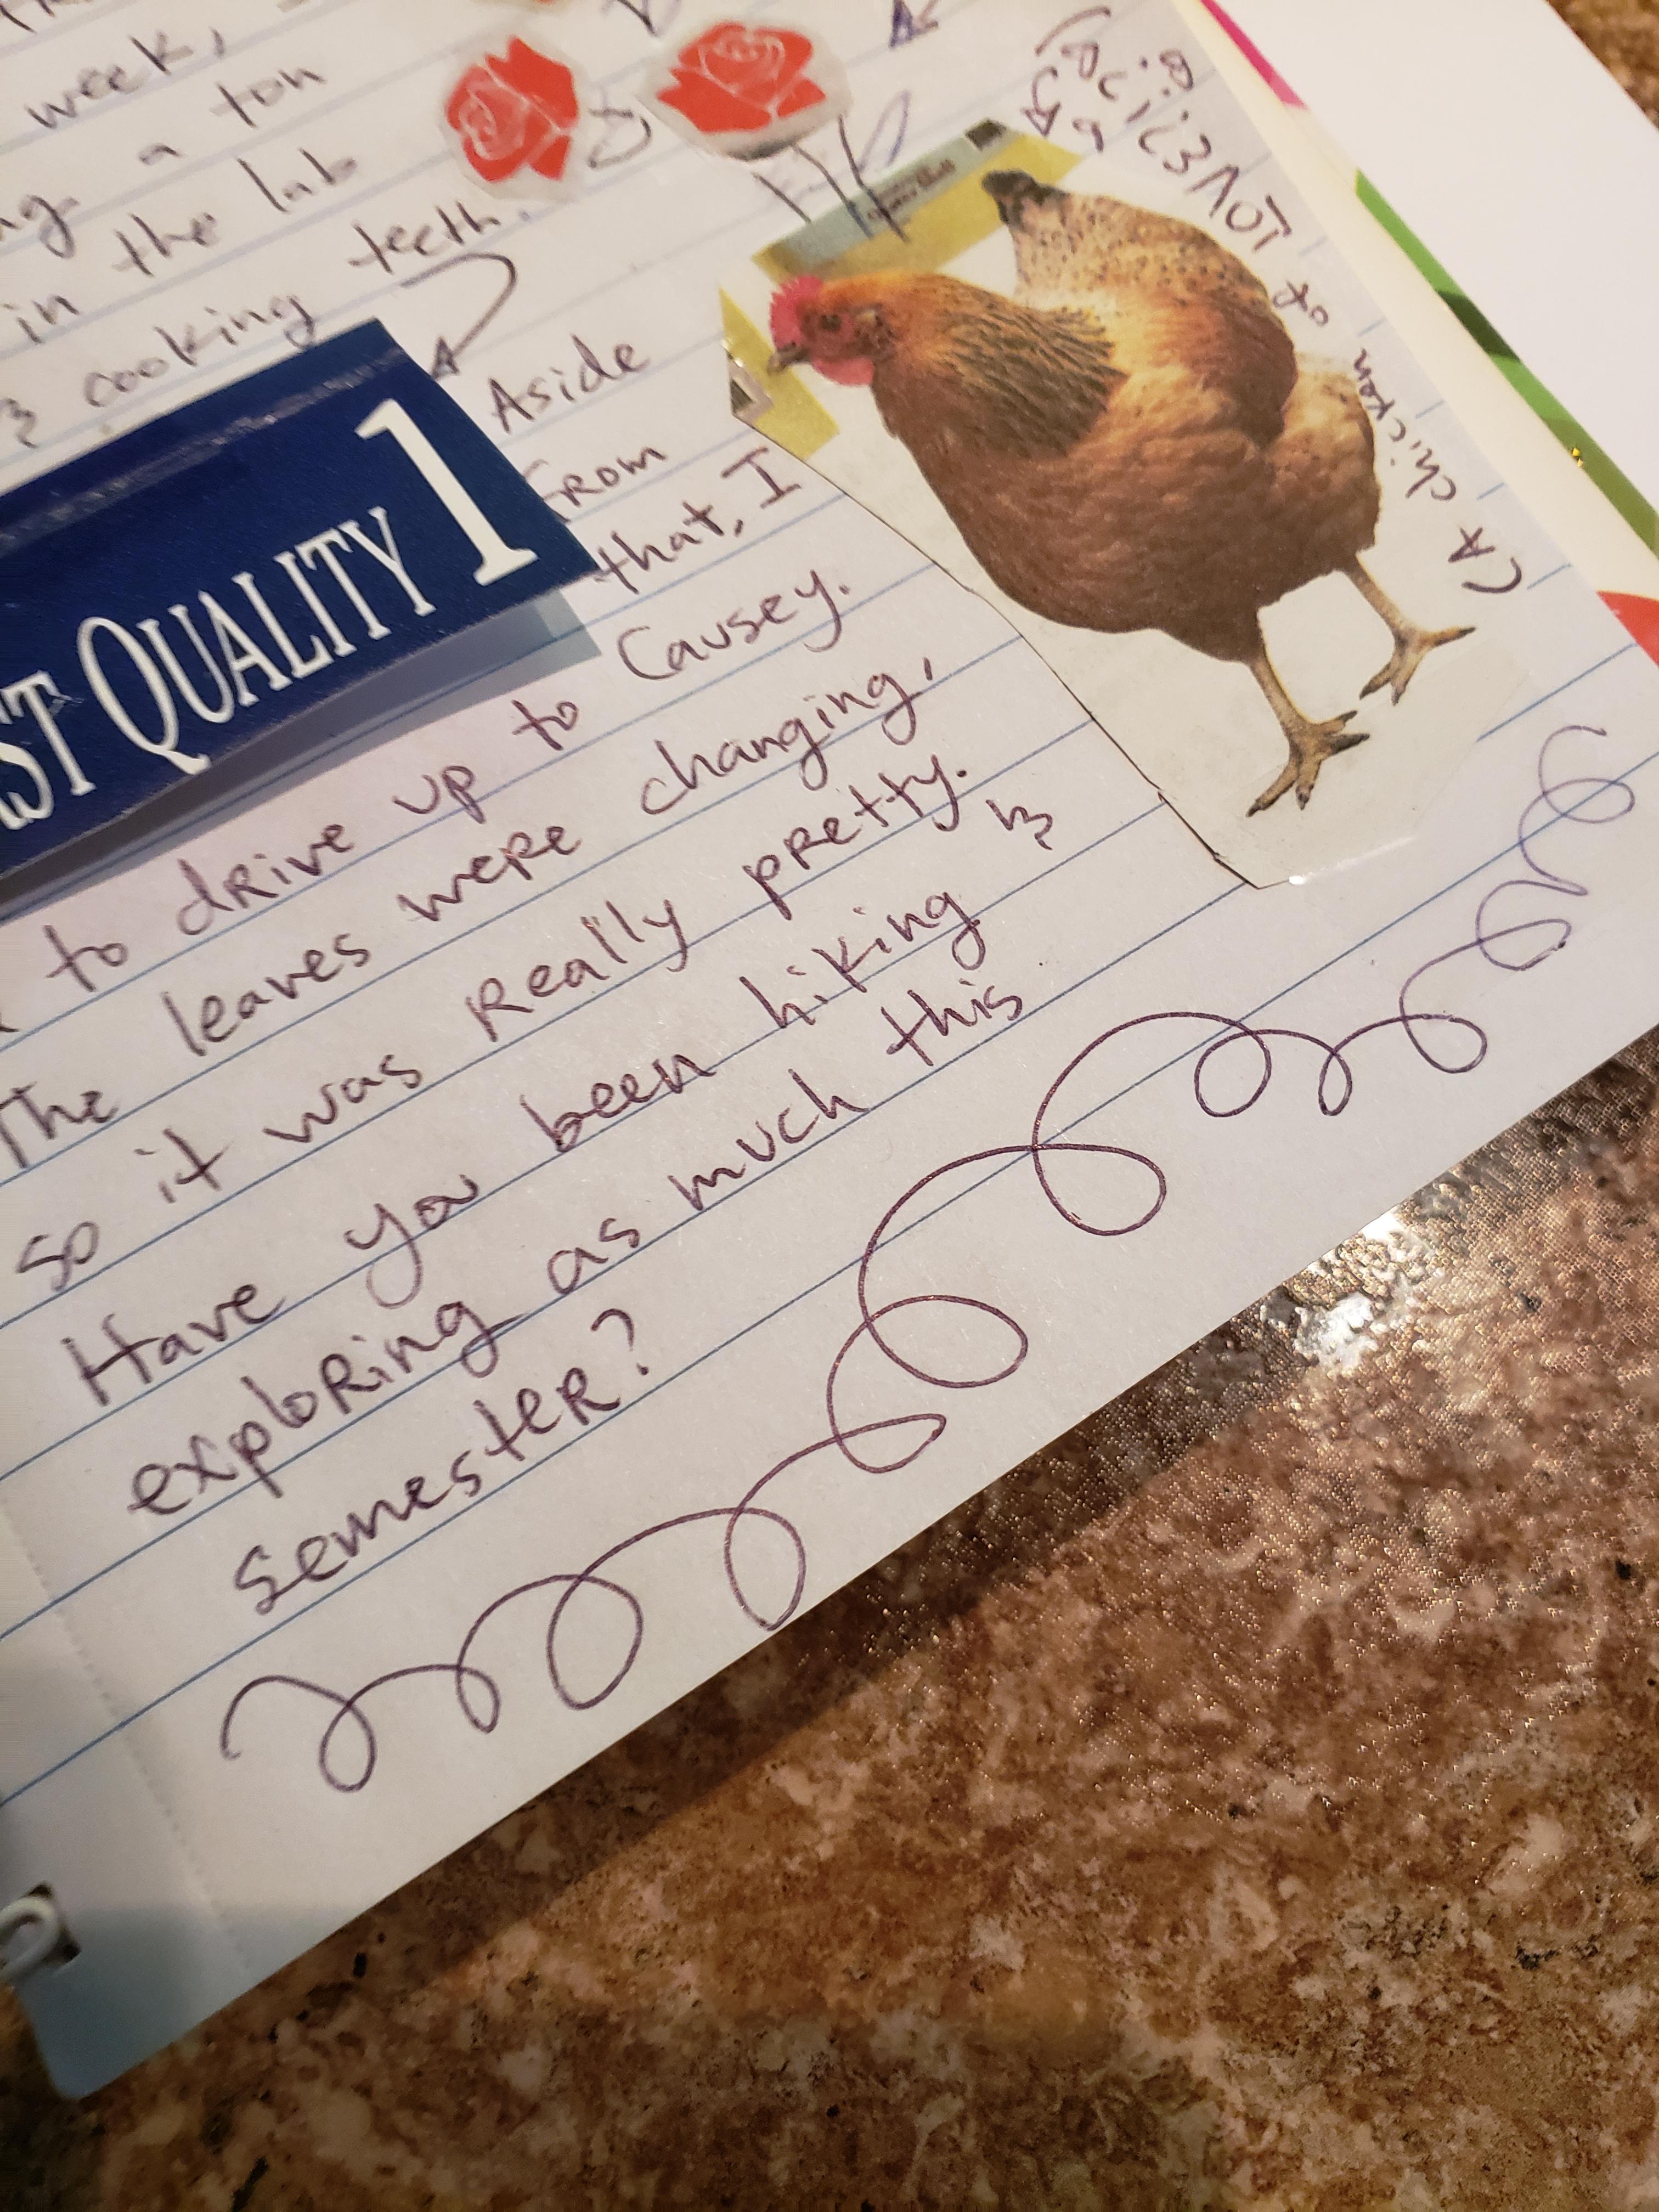 week,
a ton
in the lab
& cooking teeth.
Aside
from
that, I
ST QUALITY 1
to drive up to Causey.
The leaves were changing,
so it was really pretty.
Have you been hiking &
exploring as much this
semester?
(A chicken
of